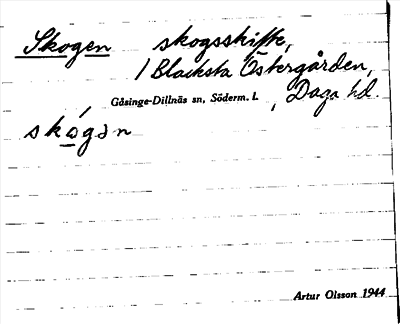 Skogen skogsskifte,
1 Blacksta Östergården,
Gåsinge-Dillnäs sn, Söderm. l. , Daga hd.
skógən
Artur Olsson 1944